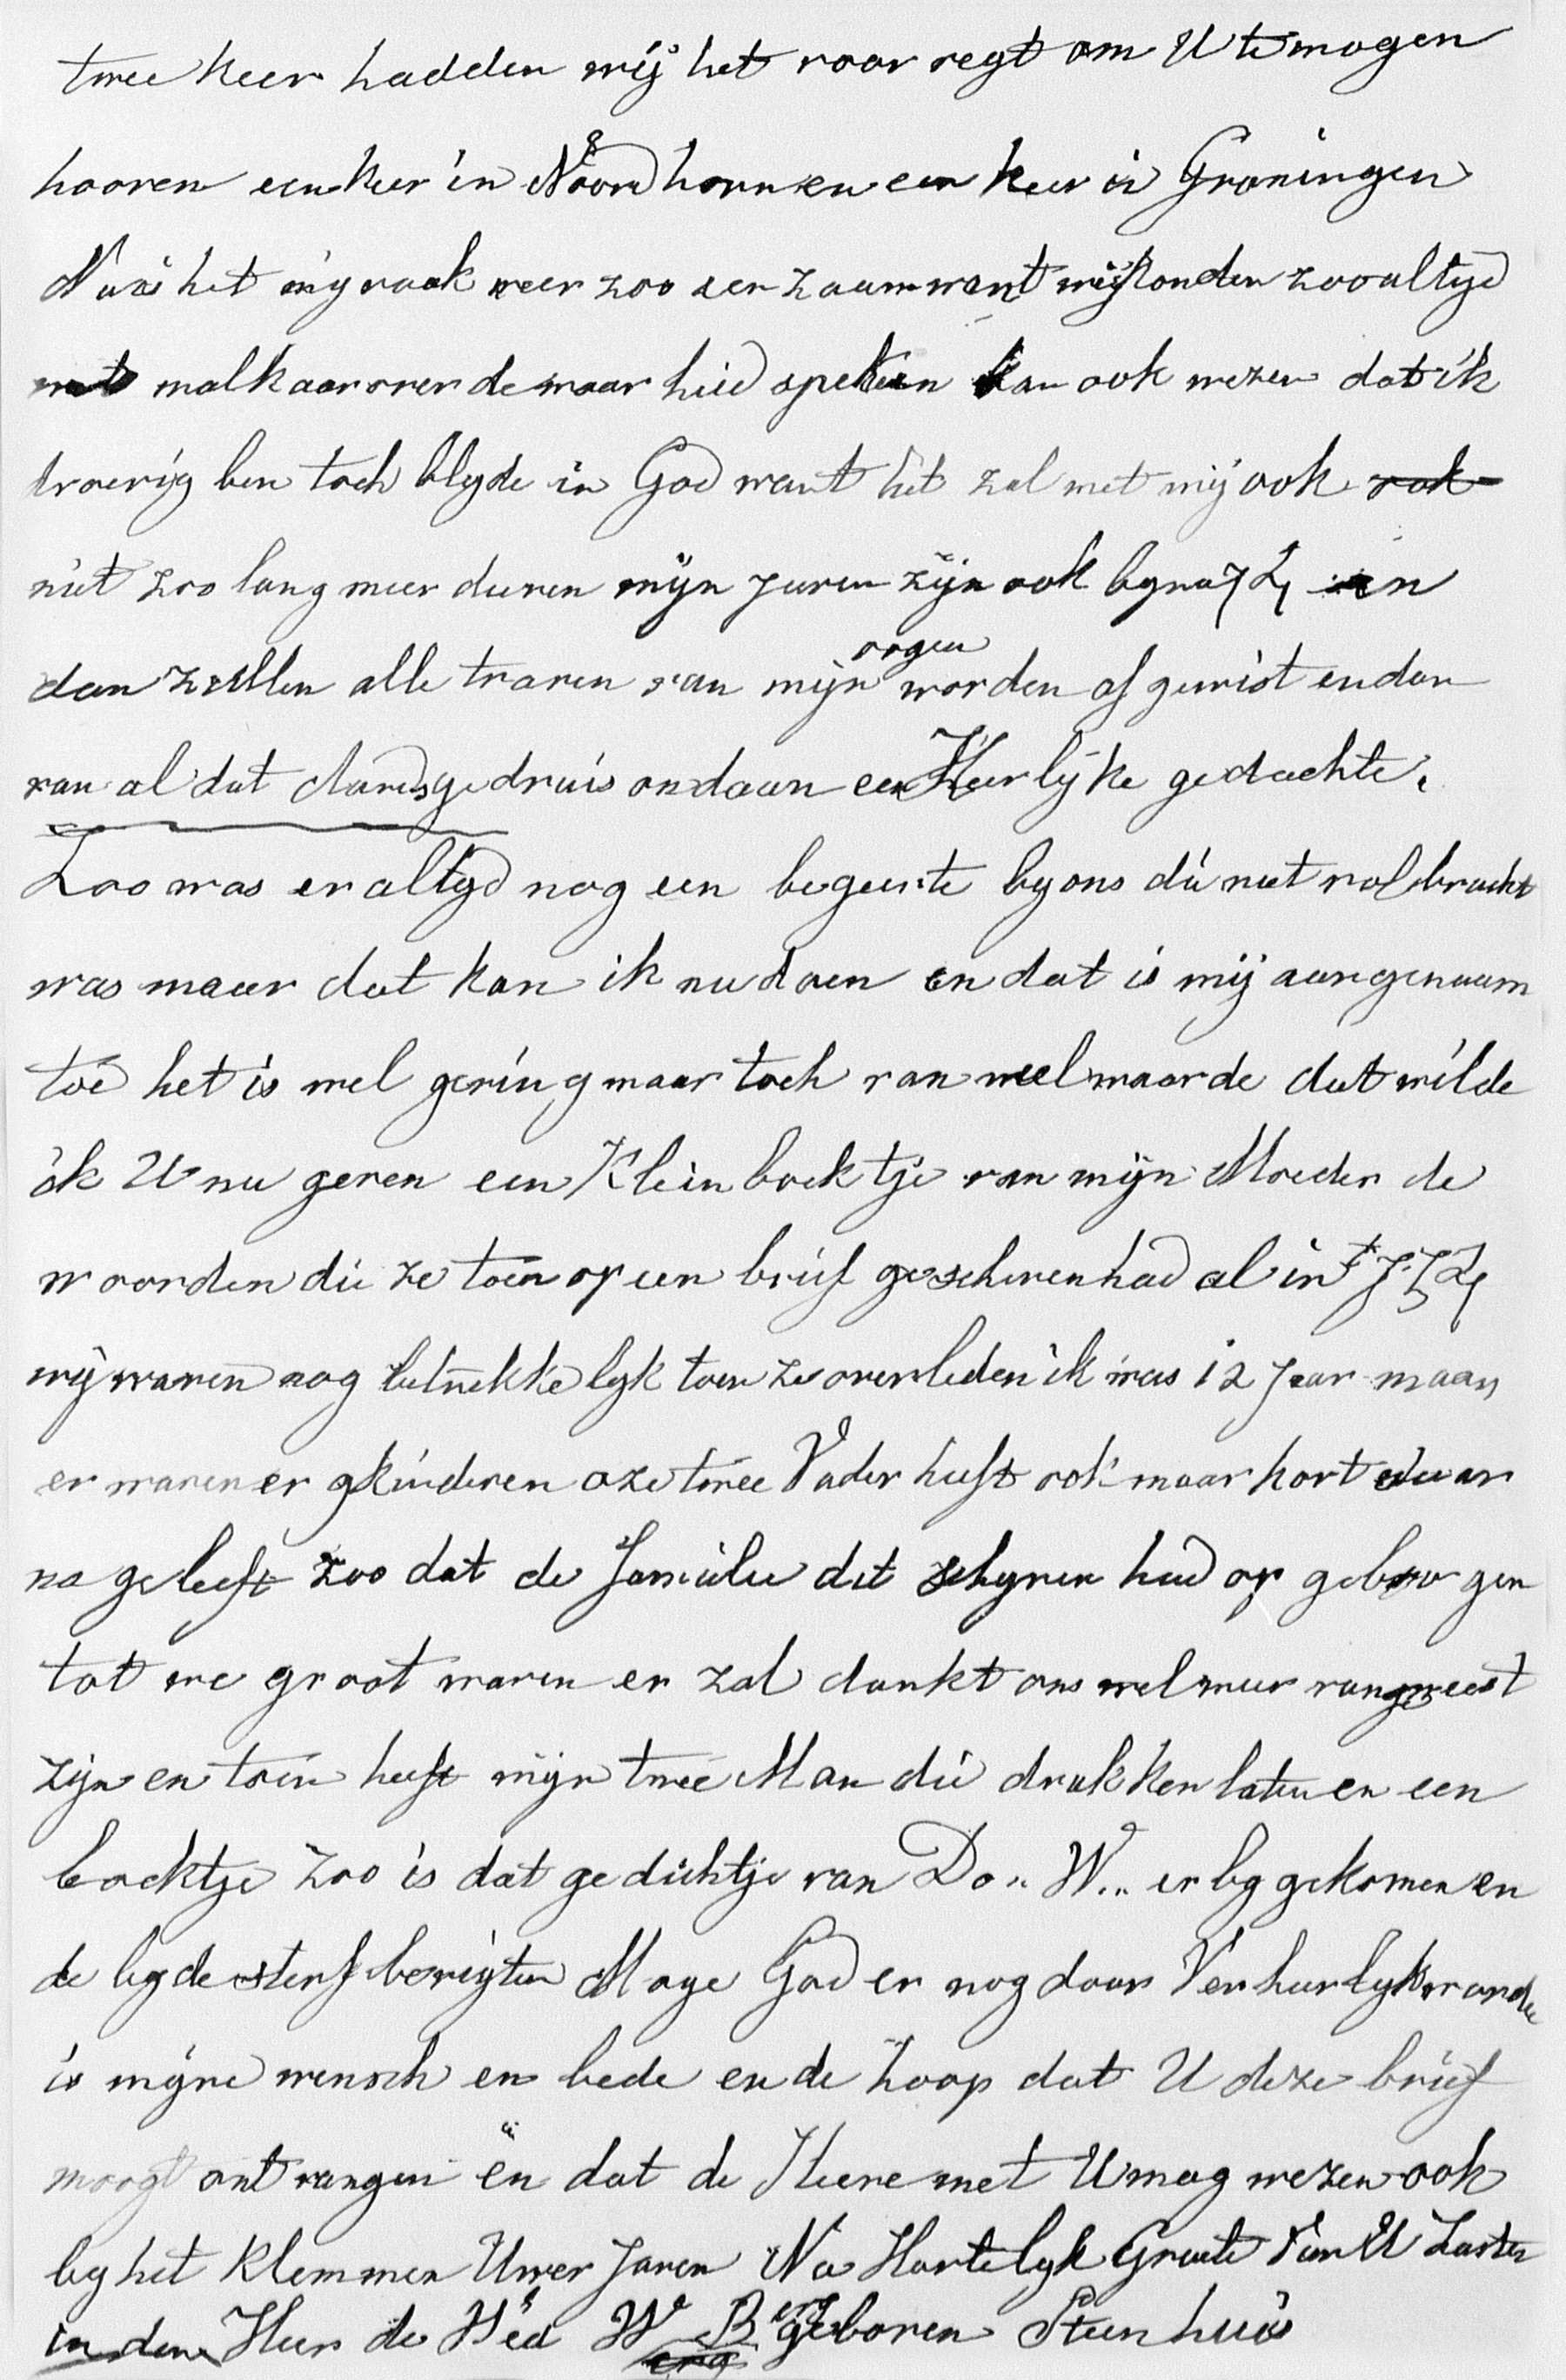 twee keer hadden wij het voor regt om U te mogen
hooren een keer in Noordhorn en een keer in Groningen
Nu is het my vaak weer zoo eenzaam want wij konden zoo altyd
met malkaar over de waarhied speken kan ook wezen dat ik
troerig ben toch blyde in God want het zal met mij ook ook
niet zoo lang meer duren mijn jaren zijn ook byna 74 en
dan zullen alle tranen van mijn oogen worden af gewist en dan
van al dat aardsgedruis ondaan een Heerlijke gedachte.
Zoo was er altyd nog een begeerte by ons die niet volbracht
was maar dat kan ik nu doen en dat is mij aangenaam
toe het is wel gering maar toch van veel waarde dat wilde
ik U nu geven een Klein boektje van mijn Moeder de
woorden die ze toen op een brief geschreven had al in 't J. 54
wij waren nog betrekkelyk toen ze overleden ik was 12 Jaar maar
er waren er 9 kinderen oze twee Vader heeft ook maar kort daar
na geleeft zoo dat de familie dit schyven had op geborgen
tot we groot waren er zal dunkt ons wel meer van geweest
zijn en toen heeft mijn twee Man die drukken laten en een
boektje zoo is dat gedichtje van Do.. W... er by gekomen en
de byde sterfberigten Moge God er nog door Verheerlykt worde
is myne wensch en bede en de hoop dat U deze brief
moogt ontvangen en dat de Heere met U mag wezen ook
by het klemmen Uwer Jaren Na Hartelyk Groete van U Zuster
in den Heer de Wed W B geboren Steenhuis